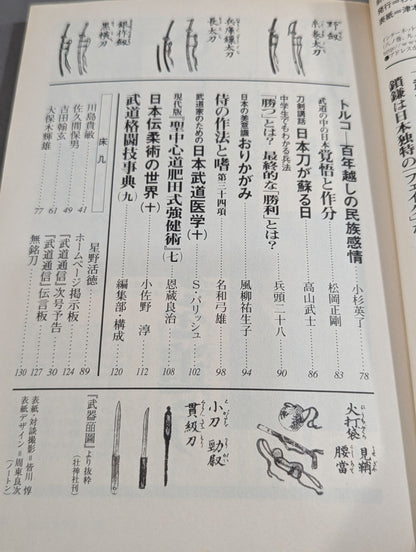 野劔
糸巻太刀
兵庫鎖太刀
長太刀
銀作劔
黒横刀
トルコ―百年越しの民族感情 小杉英了 78
武道の中の日本 覚悟と作分 松岡正剛 83
刀剣講話 日本刀が蘇る日 高山武士 86
中学生でもわかる兵法
「勝つ」とは? 最終的な「勝利」とは? 兵頭二十八 90
日本の美意識 おりかがみ 風柳祐生子 94
侍の作法と嗜 第三十四項 名和弓雄 98
武道家のための 日本武道医学(十) S・パリッシュ 102
現代版『聖中心道肥田式強健術』(七) 恩蔵良治 108
日本伝柔術の世界(十) 小佐野淳 112
武道格闘技事典(九) 編集部・構成 120
床几
川島貴敏 41
佐久間保男 49
吉田翰玄 61
大保木輝雄 77
星野活徳 89
ホームページ掲示板 124
『武道通信』次号予告 30
『武道通信』伝言板 127
無銘刀 130
火打袋
見鞘
腰當
小刀
勁馭
貫級刀
『武器皕圖』より抜粋
(壮神社刊)
表紙・対談撮影=皆川惇
表紙デザイン=周東良次
(ノートン)
表紙=津本
鎖鎌は日本独特の